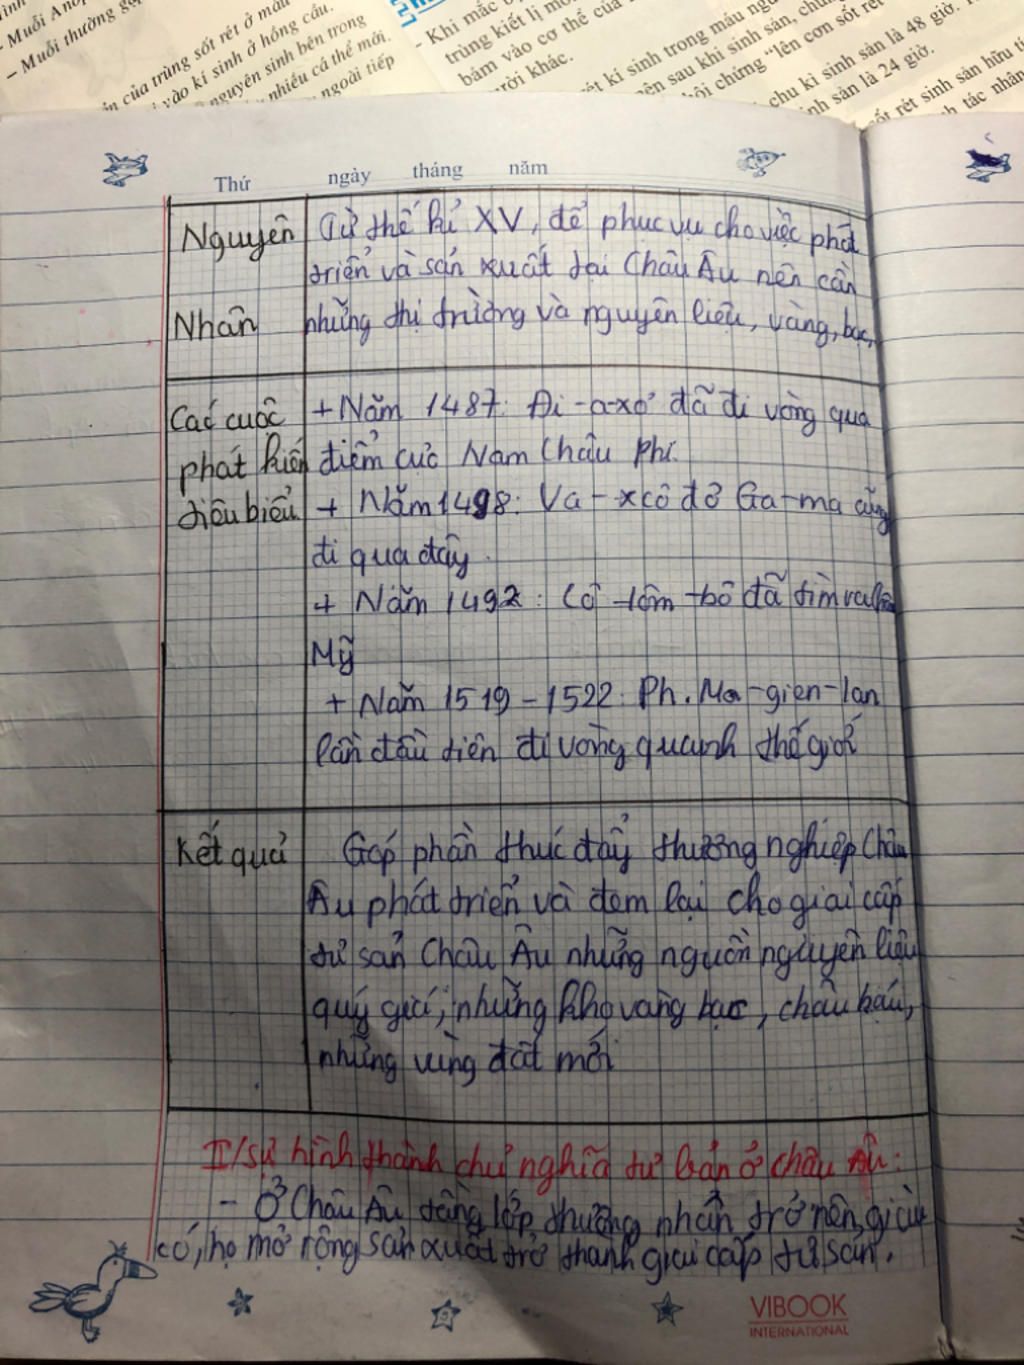 - Muỗi thường
ản của trùng sốt rét ở
vào kí sinh ở hồng cầu.
nguyên sinh bên trong
nhiều cá thể mới.
ngoài tiếp
- Khi mắc
trùng kiết lị
bám vào cơ thể của
rời khác.
ét kí sinh trong máu
ên sau khi sinh sản,
hội chứng "lên cơn sốt rét
chu kì sinh sản là 48 giờ.
nh sản là 24 giờ.
ốt rét sinh sản hữu
tác nhân
Thứ ngày tháng năm
Nguyên
Nhân
Từ thế kỉ XV, để phục vụ cho việc phát
triển và sản xuất tại Châu Âu nên cần
những thị trường và nguyên liệu, vàng, bạc,
Các cuộc
phát kiến
tiêu biểu
+ Năm 1487: Đi-a-xơ đã đi vòng qua
điểm cực Nam Châu Phi.
+ Năm 1498: Va-xcô đơ Ga-ma cũng
đi qua đây.
+ Năm 1492: Cô-lôm-bô đã tìm ra Châu
Mỹ
+ Năm 1519-1522: Ph. Ma-gien-lan
lần đầu tiên đi vòng quanh thế giới
Kết quả
Góp phần thúc đẩy thương nghiệp Châu
Âu phát triển và đem lại cho giai cấp
tư sản Châu Âu những nguồn nguyên liệu
quý giá, những kho vàng bạc, châu báu,
những vùng đất mới
I/ Sự hình thành chủ nghĩa tư bản ở châu Âu:
- Ở Châu Âu tầng lớp thương nhân trở nên giàu
có, họ mở rộng sản xuất trở thành giai cấp tư sản.
VIBOOK
INTERNATIONAL